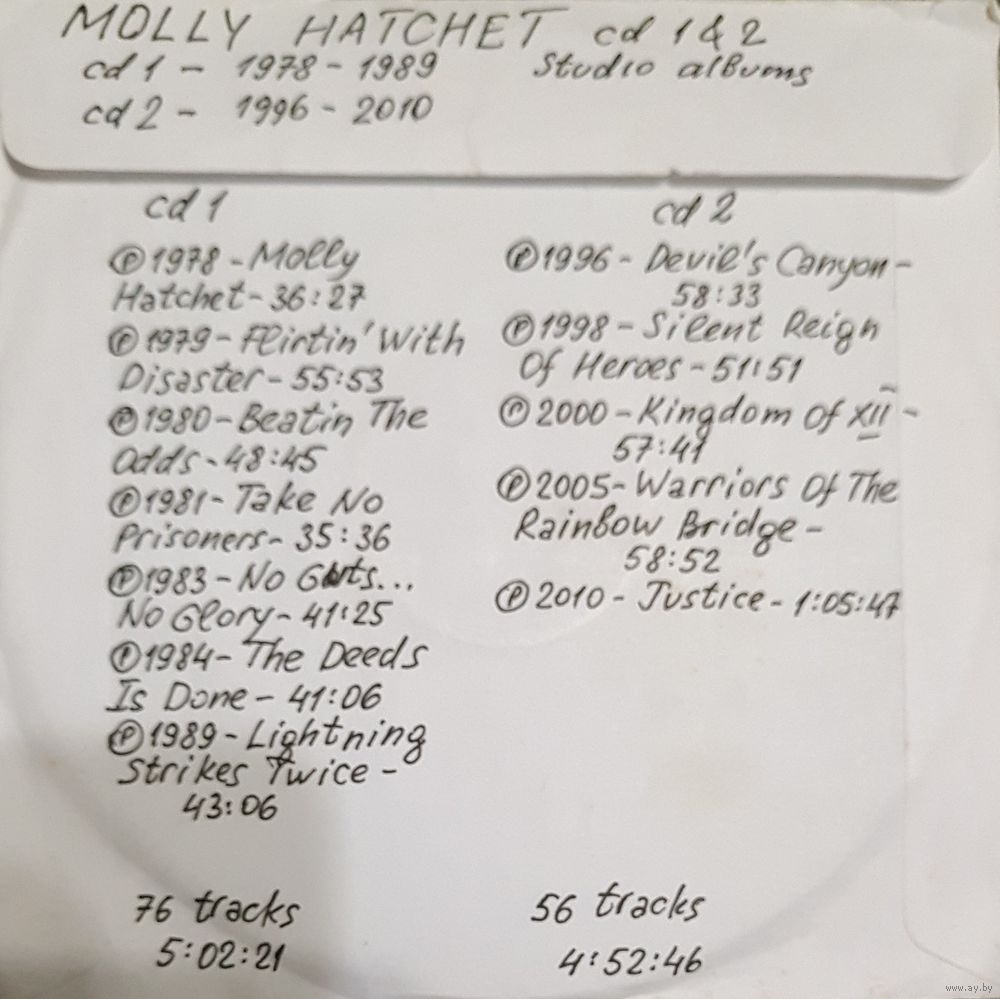 MOLLY HATCHET cd 1 & 2
cd 1 - 1978 - 1989 Studio albums
cd 2 - 1996 - 2010
cd 1
℗1978 - Molly
Hatchet - 36:27
℗1979 - Flirtin' With
Disaster - 55:53
℗1980 - Beatin The
Odds - 48:45
℗1981 - Take No
Prisoners - 35:36
℗1983 - No Guts...
No Glory - 41:25
℗1984 - The Deeds
Is Done - 41:06
℗1989 - Lightning
Strikes Twice -
43:06
76 tracks
5:02:21
cd 2
℗1996 - Devil's Canyon -
58:33
℗1998 - Silent Reign
Of Heroes - 51:51
℗2000 - Kingdom Of XII -
57:41
℗2005 - Warriors Of The
Rainbow Bridge -
58:52
℗2010 - Justice - 1:05:47
56 tracks
4:52:46
www.ay.by